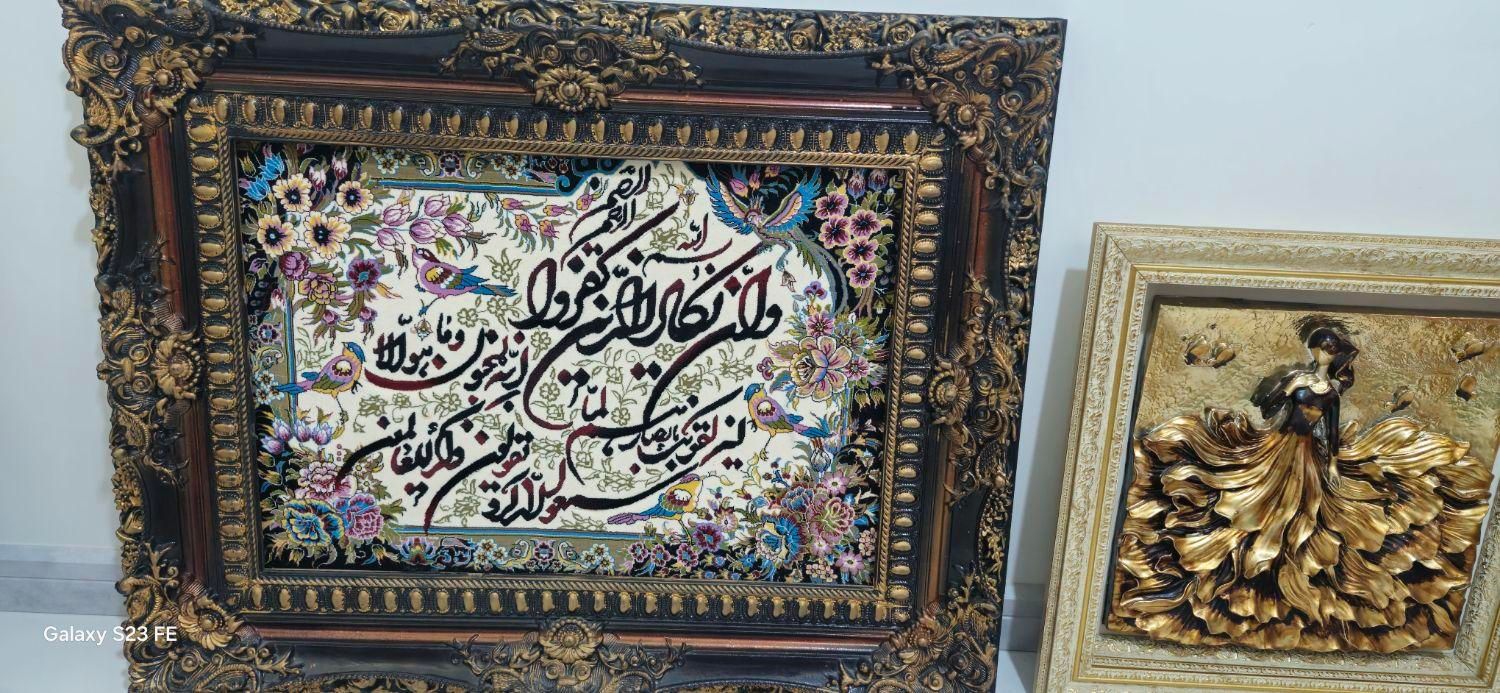 الله
الرحمن
الرحیم
وان یکاد الذین کفروا
لیزلقونک بابصارهم لما
سمعوا الذکر و یقولون
انه لمجنون
وما هو الا
ذکر للعالمین
Galaxy S23 FE